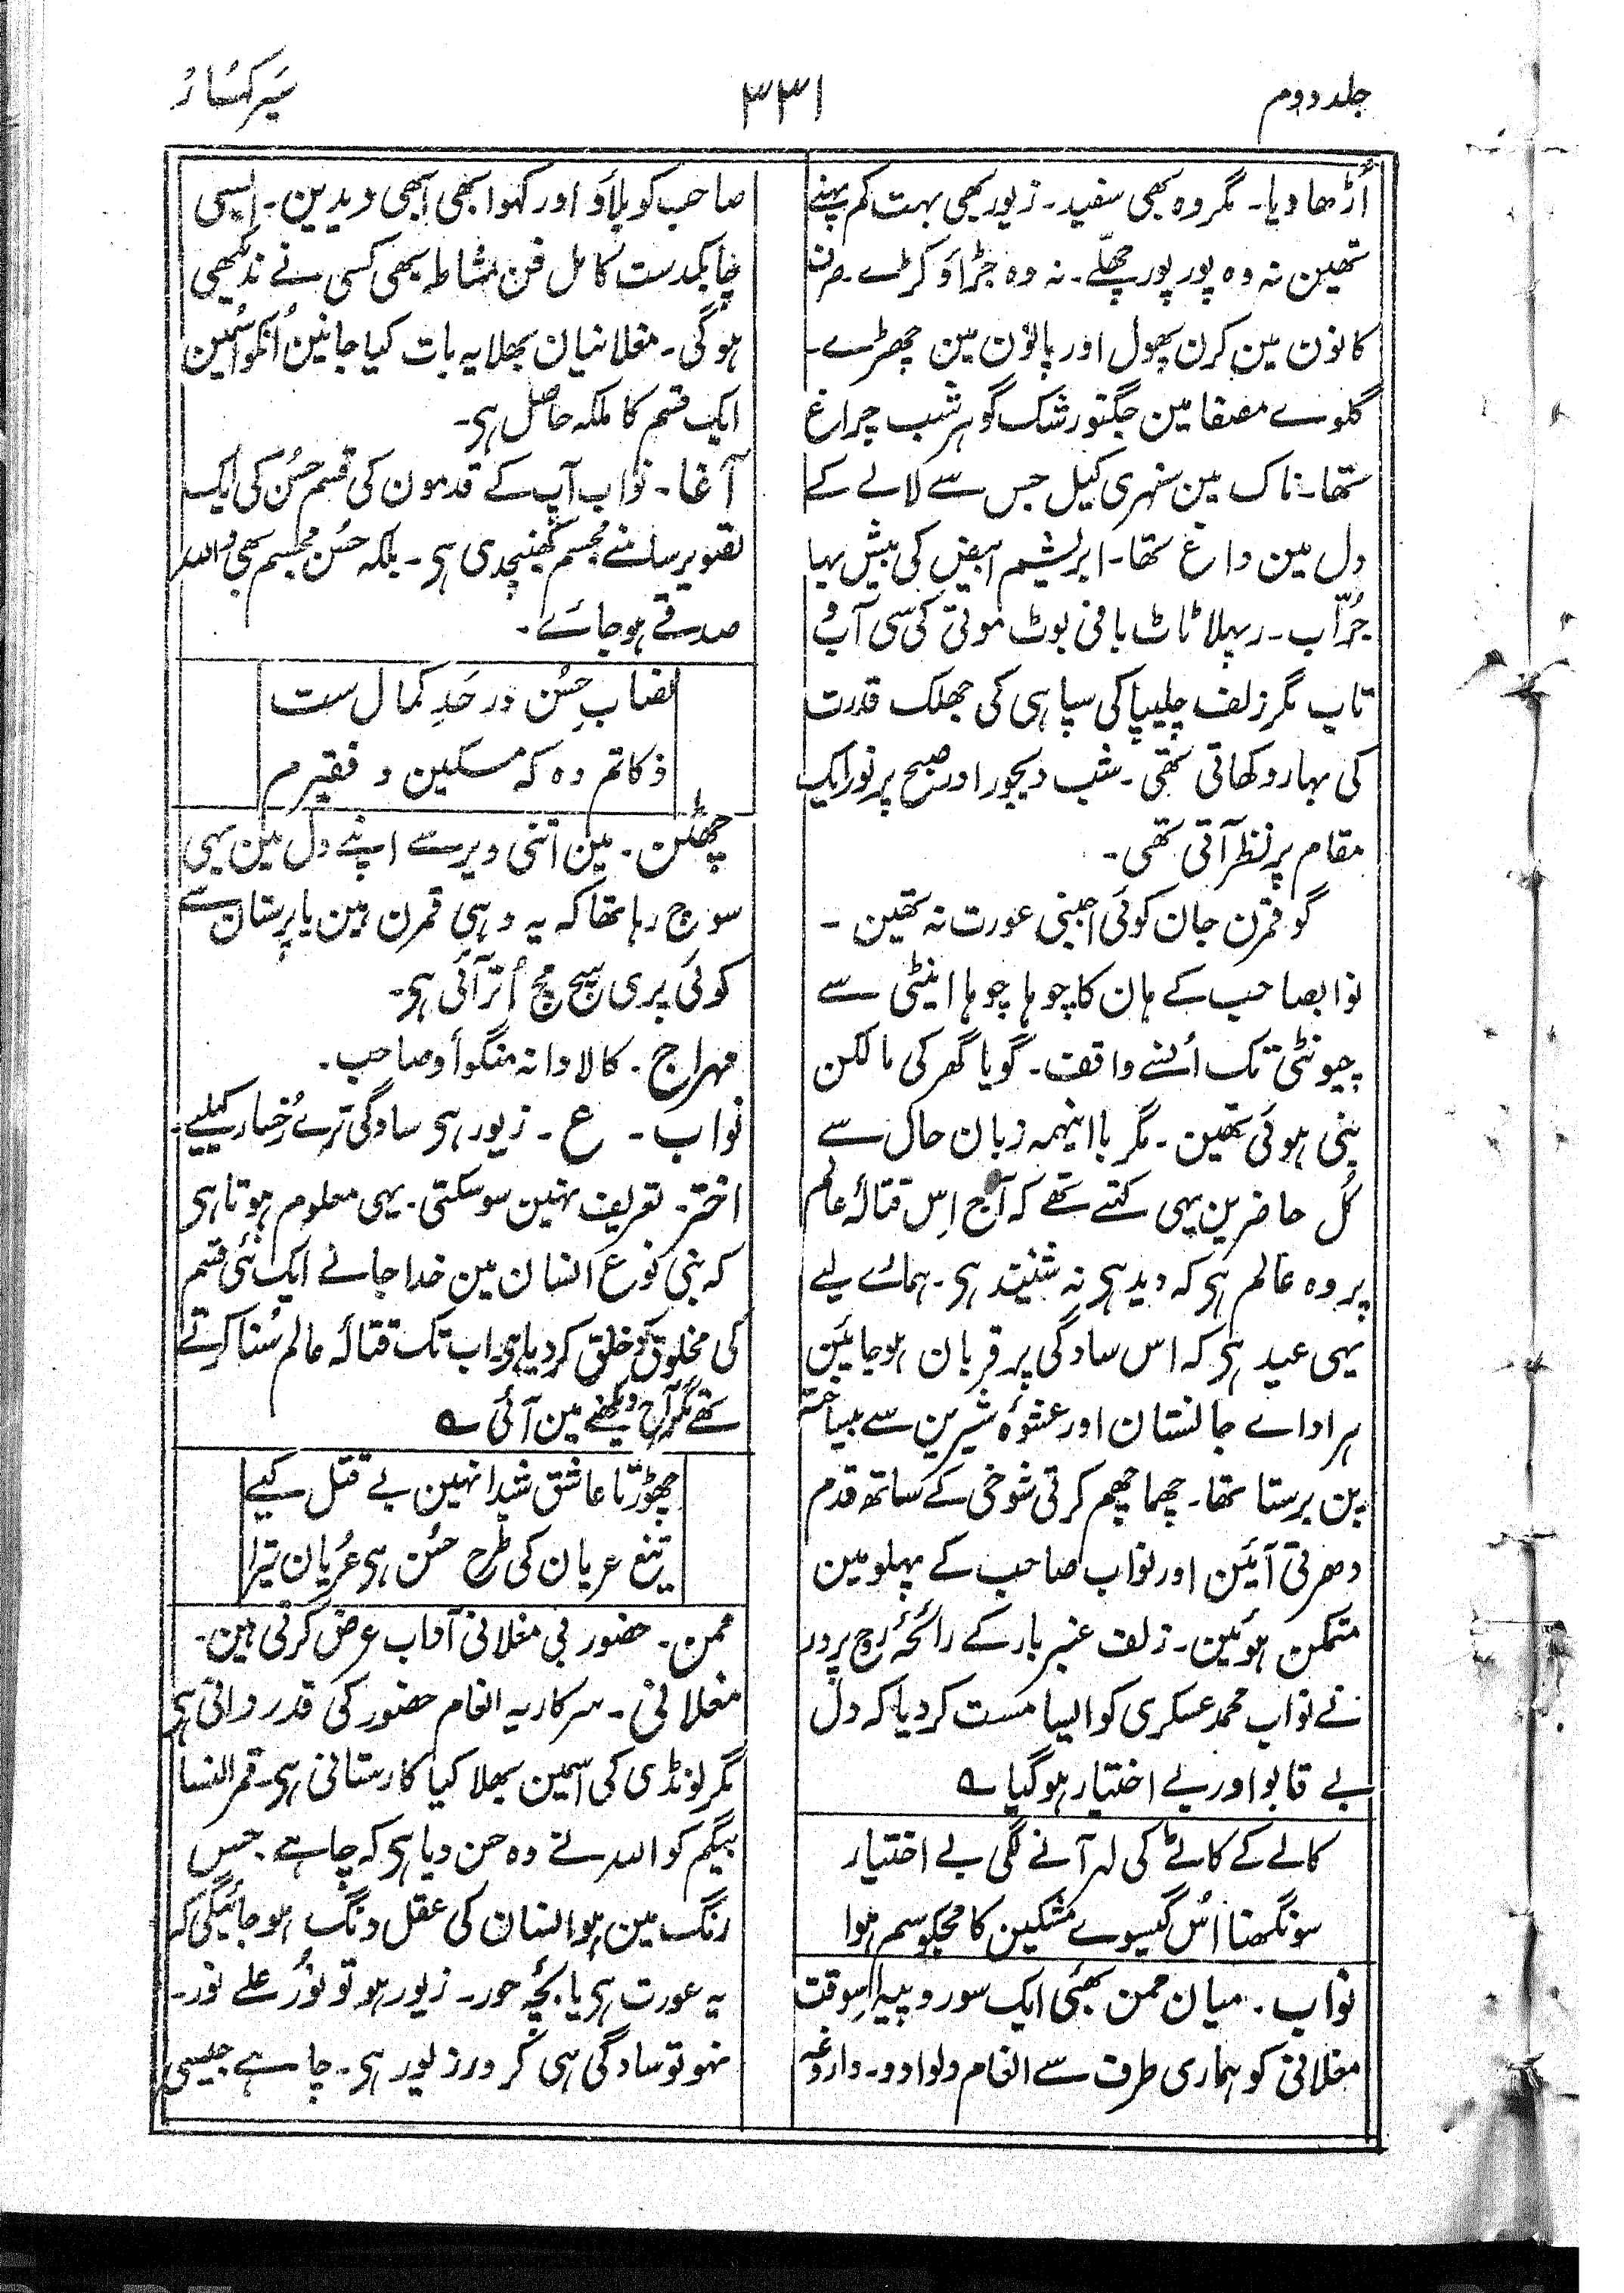 جلد دوم
۳۳۱
سَیرکہسَارُ
اُڑھا دیا۔ مگر وہ بھی سفید۔ زیور بھی بہت کم پہنے
تھین نہ وہ پور پور چھلّے۔ نہ وہ جڑاؤ کڑے۔ صرف
کانون مین کرن پھول اور پائون مین چھڑے۔
گلوے مصفا مین جگنو رشک گوہر شب چراغ
تھا۔ ناک مین سنہری کیل جس سے لالے کے
دل مین داغ تھا۔ ابریشم ابیض کی بیش بہا
جُرّاب۔ رپہلا ٹاٹ بافی بوٹ موتی کی سی آب و
تاب مگر زلف چلیپا کی سیاہی کی جھلک قدرت
کی بہار دکھاتی تھی۔ شب دیجور اور صبح پر نور ایک
مقام پر نظر آتی تھی۔
گو قمرن جان کوئی اجنبی عورت نہ تھین۔
نوابصاحب کے ہان کا چوہا چوہا اینٹی سے
چیونٹی تک اُنسے واقف۔ گویا گھر کی مالکن
بنی ہوئی تھین۔ مگر باینہمہ زبان حال سے
کُل حاضرین یہی کہتے تھے کہ آج اِس قتالۂ عالم
پر وہ عالم ہی کہ دید ہی نہ شنید ہی۔ ہمارے لیے
یہی عید ہی کہ اس سادگی پر قربان ہو جائین
ہر اداے جانستان اور عشوۂ شیرین سے بیساختہ
پن برستا تھا۔ چھما چھم کرتی شوخی کے ساتھ قدم
دھرتی آئین اور نواب صاحب کے پہلو مین
متمکن ہوئین۔ زلف عنبر بار کے رائحۂ روح پرور
نے نواب محمد عسکری کو ایسا مست کر دیا کہ دل
بے قابو اور بے اختیار ہو گیا ؎
کالے کے کاٹے کی لہر آنے لگی بے اختیار
سونگھنا اُس گیسوے مشکین کا مجکو سم ہوا
نواب۔ میان ممن بھئی ایک سو روپیہ اِسوقت
مغلانی کو ہماری طرف سے انعام دلوا دو۔ داروغہ
صاحب کو بلاؤ اور کہو ابھی ابھی دیدین۔ ایسی
چابکدست کامل فن مشاطہ بھی کسی نے ندیکھی
ہوگی۔ مغلانیان بھلا یہ بات کیا جانین اُنکو اسمین
ایک قسم کا ملکہ حاصل ہی۔
آغا۔ نواب آپ کے قدمون کی قسم حسُن کی ایک
تصویر سامنے مجسم کھینچدی ہی۔ بلکہ حسُن مجسم بھی واللہ
صدقے ہو جائے۔
نصاب حِسُن در حَدِ کمال ست
زکاتم دہ کہ مسکین و فقیرم
چھٹن۔ مین اتنی دیر سے اپنے دل مین یہی
سوچ رہا تھا کہ یہ وہی قمرن ہین یا پرستان سے
کوئی پری سچ مچ اُتر آئی ہی۔
مہراج۔ کالا دانہ منگواؤ صاحب۔
نواب۔ ع۔ زیور ہی سادگی ترے رُخسار کیلیے۔
اختر۔ تعریف نہین ہو سکتی۔ یہی معلوم ہوتا ہی
کہ بنی نوع انسان مین خدا جانے ایک نئی قسم
کی مخلوق کو خلق کر دیا ہی۔ اب تک قتالۂ عالم سُنا کرتے
تھے مگر آج دیکھنے مین آئی ؎
چھوڑتا عاشق شیدا نہین بے قتل کیے
تیغ عریان کی طرح حسُن ہی عُریان تیرا
ممن۔ حضور بی مغلانی آداب عرض کرتی ہین۔
مغلانی۔ سرکار یہ انعام حضور کی قدردانی ہی
مگر لونڈی کی اسمین بھلا کیا کارستانی ہی۔ قمر النسا
بیگم کو اللہ نے وہ حسن دیا ہی کہ چاہے جس
رنگ مین ہو انسان کی عقل دنگ ہو جائیگی کہ
یہ عورت ہی یا بچۂ حور۔ زیور ہو تو نورٌ علے نور۔
نہو تو سادگی ہی کرور زیور ہی۔ چاہے جیسی